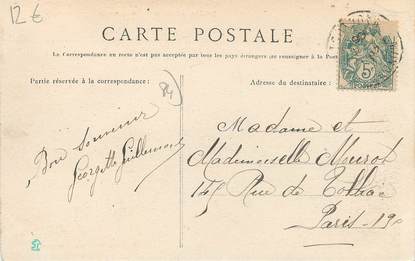 12 €
CARTE POSTALE
La Correspondance au recto n'est pas acceptée par tous les pays étrangers (se renseigner à la Poste
Partie réservée à la correspondance:
Adresse du destinataire:
84
5
POSTES
Bon souvenir
Georgette Guillemard
Madame et
Mademoiselle Mourot
145 Rue de Tolbiac
Paris-19e